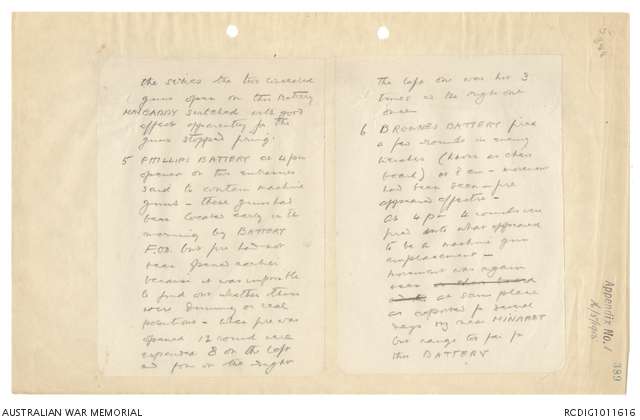 the switch the two concealed
guns open on this Battery
MACBADDY switched with good
effect apparently for the
guns stopped firing.
5 PHILLIPS BATTERY at 4 pm
opened on two entrances
said to contain machine
guns - these guns had
been located early in the
morning by BATTERY
F.OO. but fire had not
been opened earlier
because it was impossible
to find out whether these
were dummy or real
positions - When fire was
opened 12 rounds were
expended 8 on the left
and four on the right
The left one was hit 3
times & the right one
once.
6 BROWNES BATTERY fired
a few rounds on enemy
trenches (known as chess
board) at 8 am - movement
had been seen - fire
appeared effective -
At 4 pm 4 rounds were
fired into what appeared
to be a machine gun
emplacement -
movement was again
seen at same place
as reported for several
days by near MINARET
but range too far for
this BATTERY
Appendix No. 1
189
AUSTRALIAN WAR MEMORIAL
RCDIG1011616